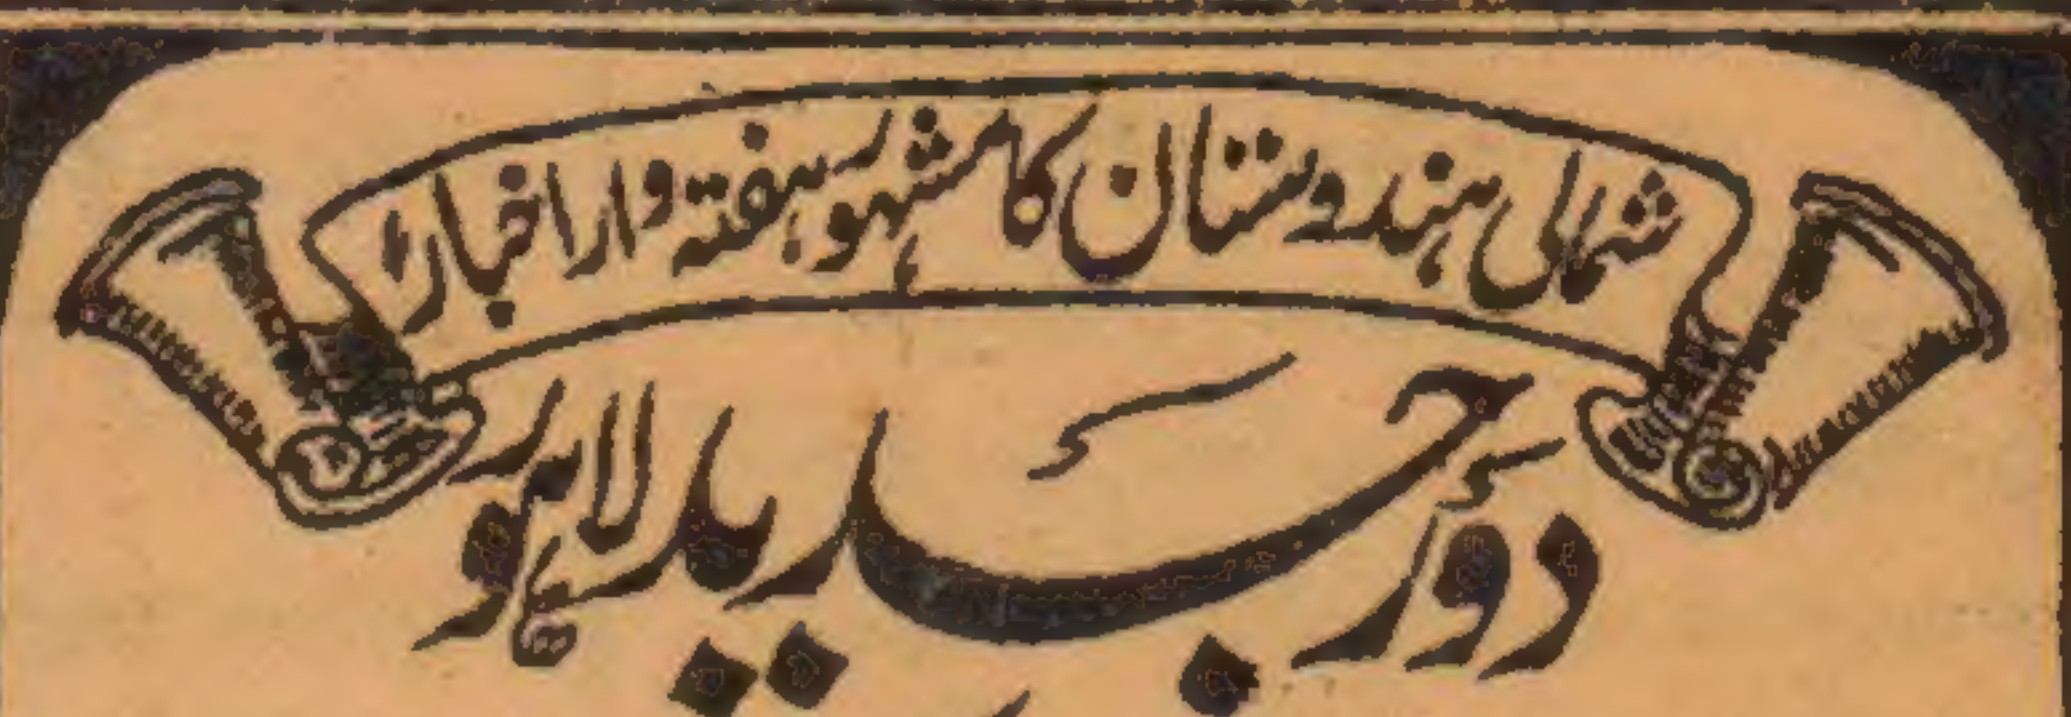 شمالی ہندوستان کا مشہور ہفتہ وار اخبار
دور جدید لاہور